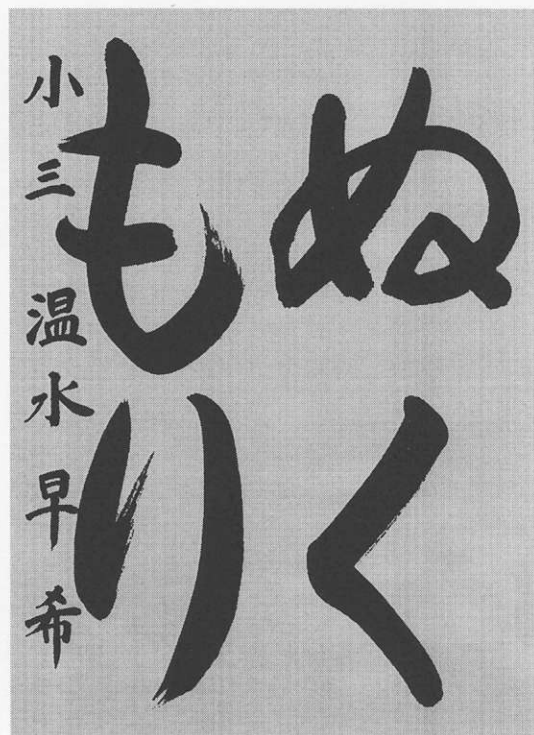 ぬく
もり
小三 温水早希